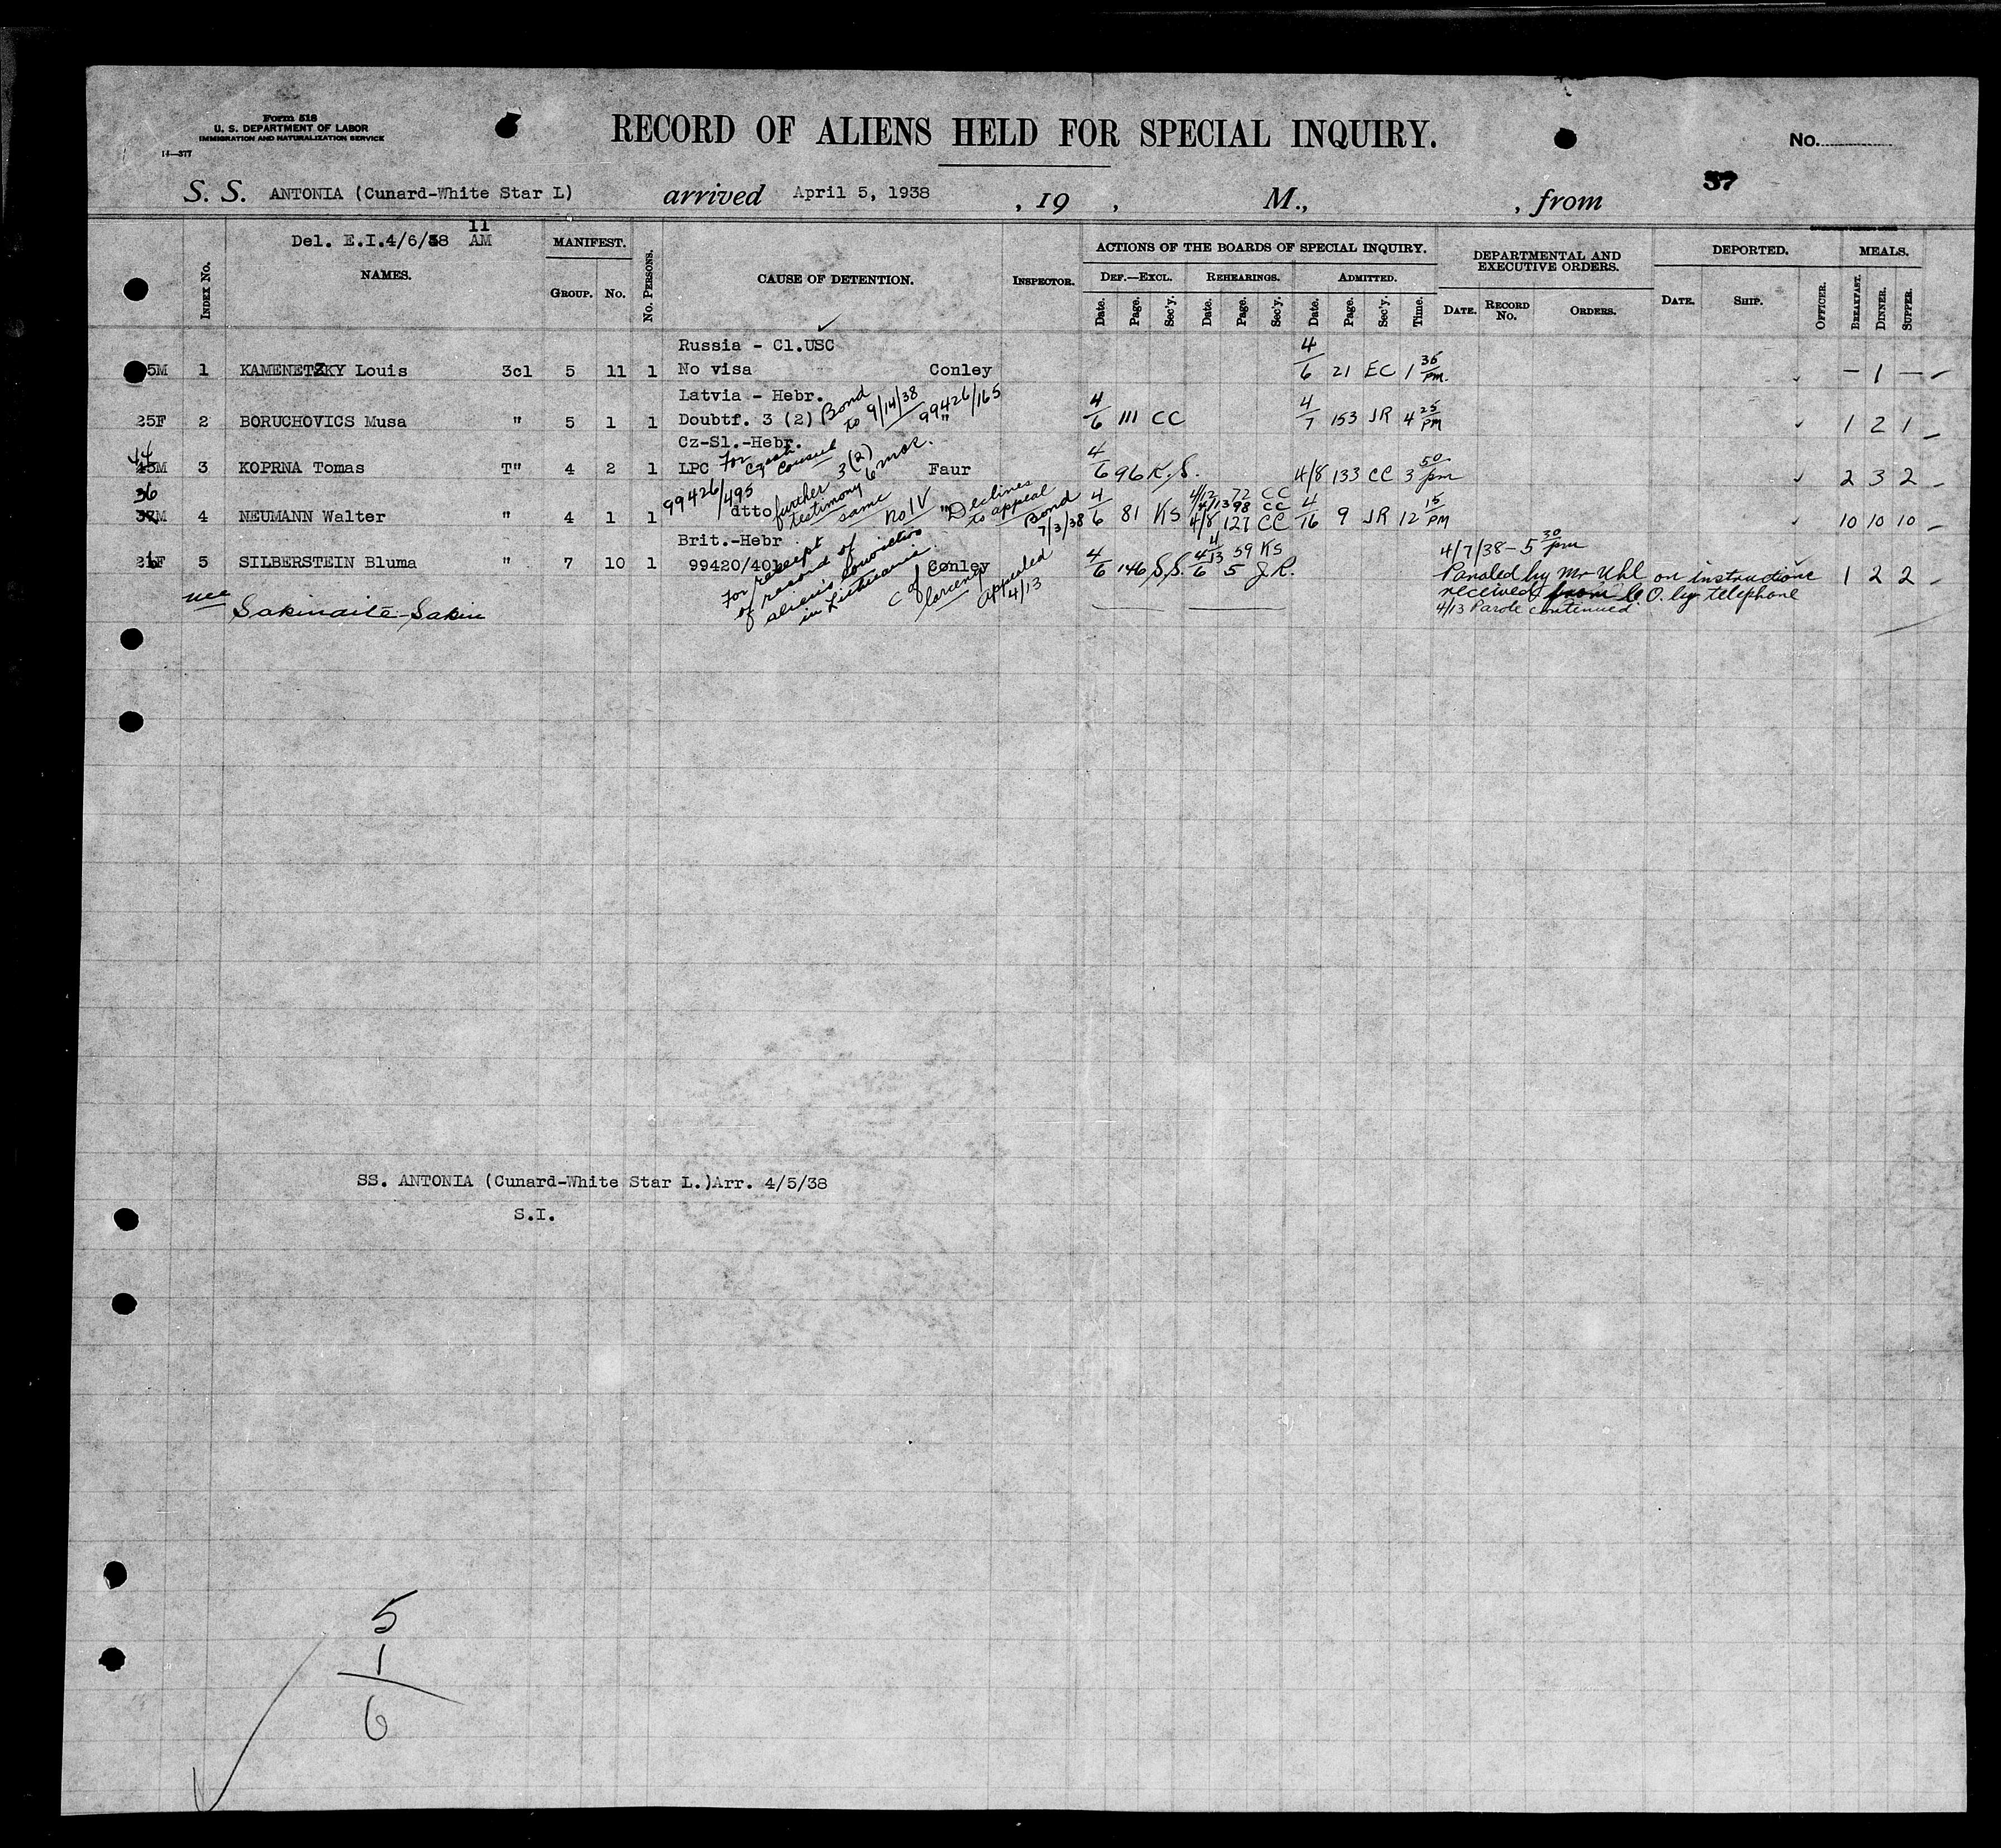 Form 518
U. S. DEPARTMENT OF LABOR
IMMIGRATION AND NATURALIZATION SERVICE
14—377
RECORD OF ALIENS HELD FOR SPECIAL INQUIRY.
No.
37
S. S. ANTONIA (Cunard-White Star L) arrived April 5, 1938 , 19 , M., , from
Del. E.I.4/6/38 11 AM
INDEX No.
NAMES.
MANIFEST.
GROUP. No.
No. PERSONS.
CAUSE OF DETENTION.
INSPECTOR.
ACTIONS OF THE BOARDS OF SPECIAL INQUIRY.
DEF.—EXCL. REHEARINGS. ADMITTED.
Date. Page. Sec'y. Date. Page. Sec'y. Date. Page. Sec'y. Time.
DEPARTMENTAL AND EXECUTIVE ORDERS.
DATE. RECORD No. ORDERS.
DEPORTED.
DATE. SHIP. OFFICER.
MEALS.
BREAKFAST. DINNER. SUPPER.
Russia - Cl.USC
5M 1 KAMENETZKY Louis 3cl 5 11 1 No visa Conley 4/6 21 EC 1 35 pm. — 1 —
Latvia - Hebr.
25F 2 BORUCHOVICS Musa " 5 1 1 Doubtf. 3 (2) Bond to 9/14/38 99426/165 " 4/6 111 CC 4/7 153 JR 4 25 PM 1 2 1
Cz-Sl.-Hebr.
44 45M 3 KOPRNA Tomas T" 4 2 1 LPC For Czech Consul 3 (2) 6 mos. Faur 4/6 96 K.S. 4/8 133 CC 3 50 pm 2 3 2
99426/495
36 37M 4 NEUMANN Walter " 4 1 1 dtto further testimony same No IV " Declines to appeal Bond 7/3/38 4/6 81 KS 4/12 72 CC 4/13 98 CC 4/8 127 CC 4/16 9 JR 12 15 PM 10 10 10
Brit.-Hebr
21F 5 SILBERSTEIN Bluma " 7 10 1 99420/401 Conley 4/6 146 S.S. 4/13 59 KS 4/6 5 J.R. 1 2 2
nee Sakinaite-Sakin
For receipt of record of alien's conviction in Lithuania
C of larceny
Appealed 4/13
4/7/38 - 5 30 pm
Paroled by Mr Uhl on instructions
received from C. O. by telephone
4/13 Parole continued
SS. ANTONIA (Cunard-White Star L.)Arr. 4/5/38
S.I.
5
1
6